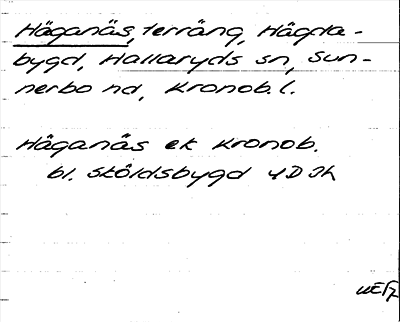 Häganäs, terräng, Hägda-
bygd, Hallaryds sn, Sun-
nerbo hd, Kronob. l.
Häganäs ek Kronob.
bl. Sköldsbygd 4D 3h